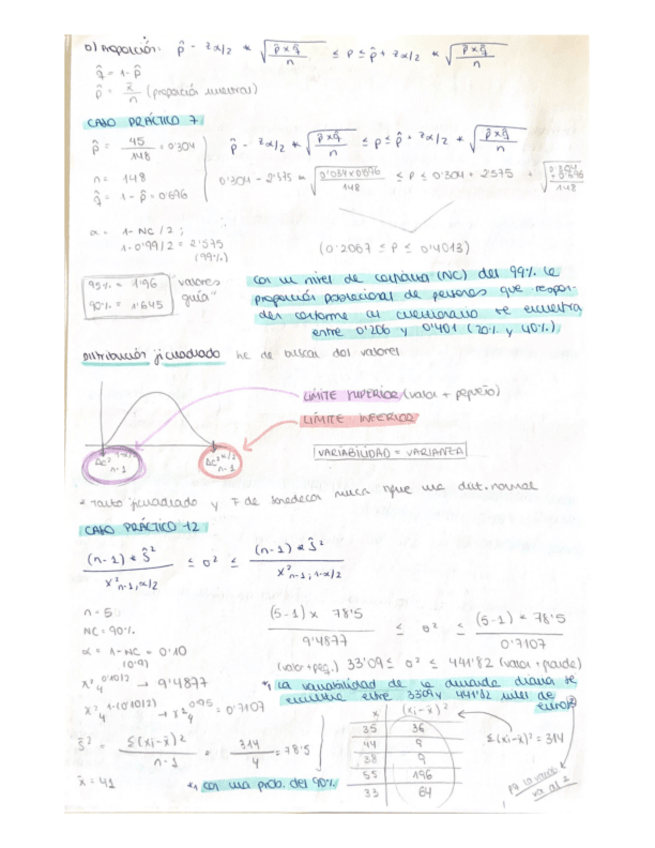 b) Proporción: p̂ - zα/2 * √(p̂ x q̂ / n) ≤ p ≤ p̂ + zα/2 * √(p̂ x q̂ / n)
q̂ = 1 - p̂
p̂ = x̄ / n (proporción muestral)
CASO PRÁCTICO 7
p̂ = 45 / 148 = 0'304
p̂ - zα/2 * √(p̂ x q̂ / n) ≤ p ≤ p̂ + zα/2 * √(p̂ x q̂ / n)
n = 148
q̂ = 1 - p̂ = 0'696
0'304 - 2'575 * ≤ p ≤ 0'304 + 2'575
α = 1 - NC / 2 ;
1 - 0'99 / 2 = 2'575
(99%)
(0'2067 ≤ p ≤ 0'4013)
95% = 1'96
90% = 1'645
"valores guía"
con un nivel de confianza (NC) del 99% la
proporción poblacional de personas que respon-
den conforme al cuestionario se encuentra
entre 0'206 y 0'401 (20% y 40%)
Distribución jicuadrado he de buscar dos valores
LÍMITE SUPERIOR (valor + pequeño)
LÍMITE INFERIOR
VARIABILIDAD = VARIANZA
n-1
n-1
* Tanto jicuadrado y F de Snedecor nunca sigue una dist. normal
CASO PRÁCTICO 12
(n-1) * Ŝ² / X²n-1, α/2 ≤ σ² ≤ (n-1) * Ŝ² / X²n-1, 1-α/2
n = 5
NC = 90%
α = 1 - NC = 0'10
(0'9)
(5-1) x 78'5 / 9'4877 ≤ σ² ≤ (5-1) * 78'5 / 0'7107
(valor + peq.) 33'09 ≤ σ² ≤ 441'82 (valor + grande)
X²4 0'10/2 → 9'4877
X²4 1-(0'10/2) → X²4 0'95 = 0'7107
*1 La variabilidad de la demanda diaria se
encuentra entre 33'09 y 441'82 miles de
euros²
Ŝ² = Σ(xi - x̄)² / n-1 = 314 / 4 = 78'5
x̄ = 41
*1 con una prob. del 90%
x (xi - x̄)²
35 36
44 9
38 9
55 196
33 64
Σ(xi - x̄)² = 314